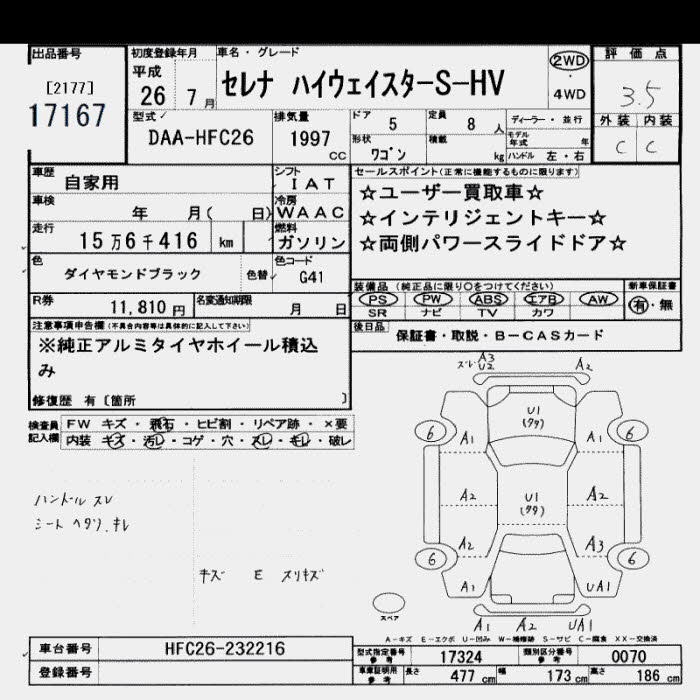 出品番号
[2177]
17167
初度登録年月
平成
26 7 月
車名・グレード
セレナ ハイウェイスターS-HV
2WD
4WD
評価点
3.5
外装 内装
C C
型式
DAA-HFC26
排気量
1997
CC
ドア 5
定員 8 人
形状 ワゴン
積載 kg
ディーラー・並行
モデル年式 年
ハンドル 左・右
車歴
自家用
シフト
IAT
車検
年 月( 日)
冷房
WAAC
走行
15万6千416 km
燃料
ガソリン
色
ダイヤモンドブラック
色替
色コード
G41
R券
11,810 円
名変通知期限
月 日
セールスポイント(正常に機能するものに限ります)
☆ユーザー買取車☆
☆インテリジェントキー☆
☆両側パワースライドドア☆
装備品 (純正品に限り○をつけてください)
新車保証書
PS PW ABS エアB AW
SR ナビ TV カワ
有・無
後日品
保証書・取説・B-CASカード
注意事項申告欄(不具合内容等は具体的に記入して下さい)
※純正アルミタイヤホイール積込
み
修復歴 有〔箇所 〕
検査員
記入欄
FW キズ・飛石・ヒビ割・リペア跡・×要
内装 キズ・汚レ・コゲ・穴・スレ・キレ・破レ
ハンドル スレ
シート ヘタリ、キレ
キズ E スリキズ
ズレ A3
U2
A2
U1
(クタ)
6
6
A1
A1
A2
U1
(クタ)
A2
A2
A3
6
6
A1
UA1
スペア
A1 A2 UA1
A-キズ E-エクボ U-凹み W-補修跡 S-サビ C-腐食 XX-交換済
車台番号
HFC26-232216
登録番号
型式指定番号
参考
17324
類別区分番号
参考
0070
車庫証明用
参考
長さ 477 cm
幅 173 cm
高さ 186 cm